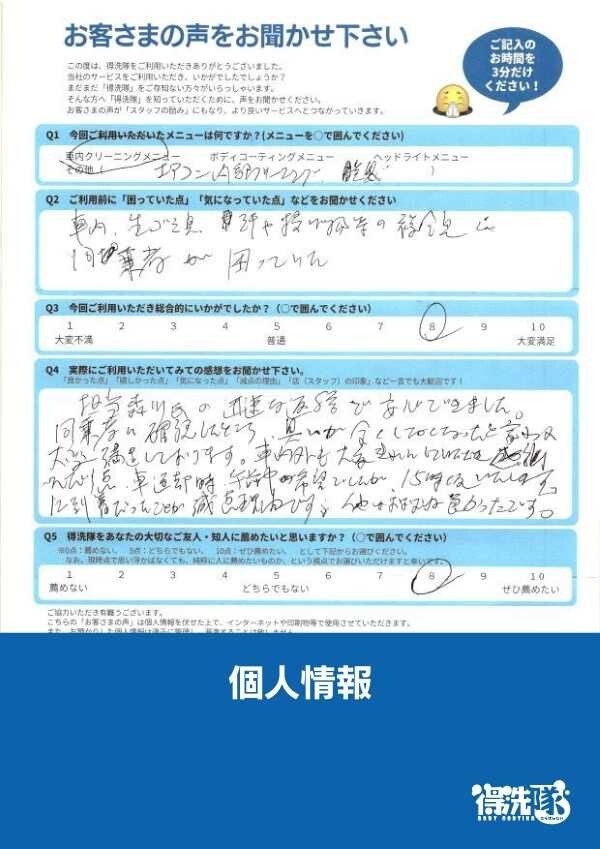 お客さまの声をお聞かせ下さい
ご記入の
お時間を
3分だけ
ください！
この度は、得洗隊をご利用いただきありがとうございました。
当社のサービスをご利用いただき、いかがでしたでしょうか？
まだまだ「得洗隊」をご存知ない方々がいらっしゃいます。
そんな方へ「得洗隊」を知っていただくために、声をお聞かせください。
お客さまの声が「スタッフの励み」にもなり、より良いサービスへとつながっていきます。
Q1 今回ご利用いただいたメニューは何ですか？(メニューを○で囲んでください)
車内クリーニングメニュー ボディコーティングメニュー ヘッドライトメニュー
その他（ エアコン内部クリーニング 脱臭 ）
Q2 ご利用前に「困っていた点」「気になっていた点」などをお聞かせください
車内 生ゴミ臭
同乗者が 困っていた
Q3 今回ご利用いただき総合的にいかがでしたか？（○で囲んでください）
1 2 3 4 5 6 7 8 9 10
大変不満 普通 大変満足
Q4 実際にご利用いただいてみての感想をお聞かせ下さい。
「良かった点」「嬉しかった点」「気になった点」「減点の理由」「店（スタッフ）の印象」など一言でも大歓迎です！
担当森川氏の迅速な返答で安心できました。
同乗者に確認したところ、臭いが全くしなくなったと言
大変満足しております。車内外も大変きれいにしていただき
点、車返却時、午前中の希望でしたが、15時
に到着だったことが減点理由です。他はおおむね良かったです。
Q5 得洗隊をあなたの大切なご友人・知人に薦めたいと思いますか？（○で囲んでください）
※0点：薦めない、 5点：どちらでもない、 10点：ぜひ薦めたい、 として下記からお選びください。
なお、現時点で思い浮かばなくても、純粋に人に薦めたいものか、という視点でお選びいただけますと幸いです。
1 2 3 4 5 6 7 8 9 10
薦めない どちらでもない ぜひ薦めたい
ご協力いただき有難うございます。
こちらの「お客さまの声」は個人情報を伏せた上で、インターネットや印刷物等で使用させていただきます。
個人情報
得洗隊
BODY COATING